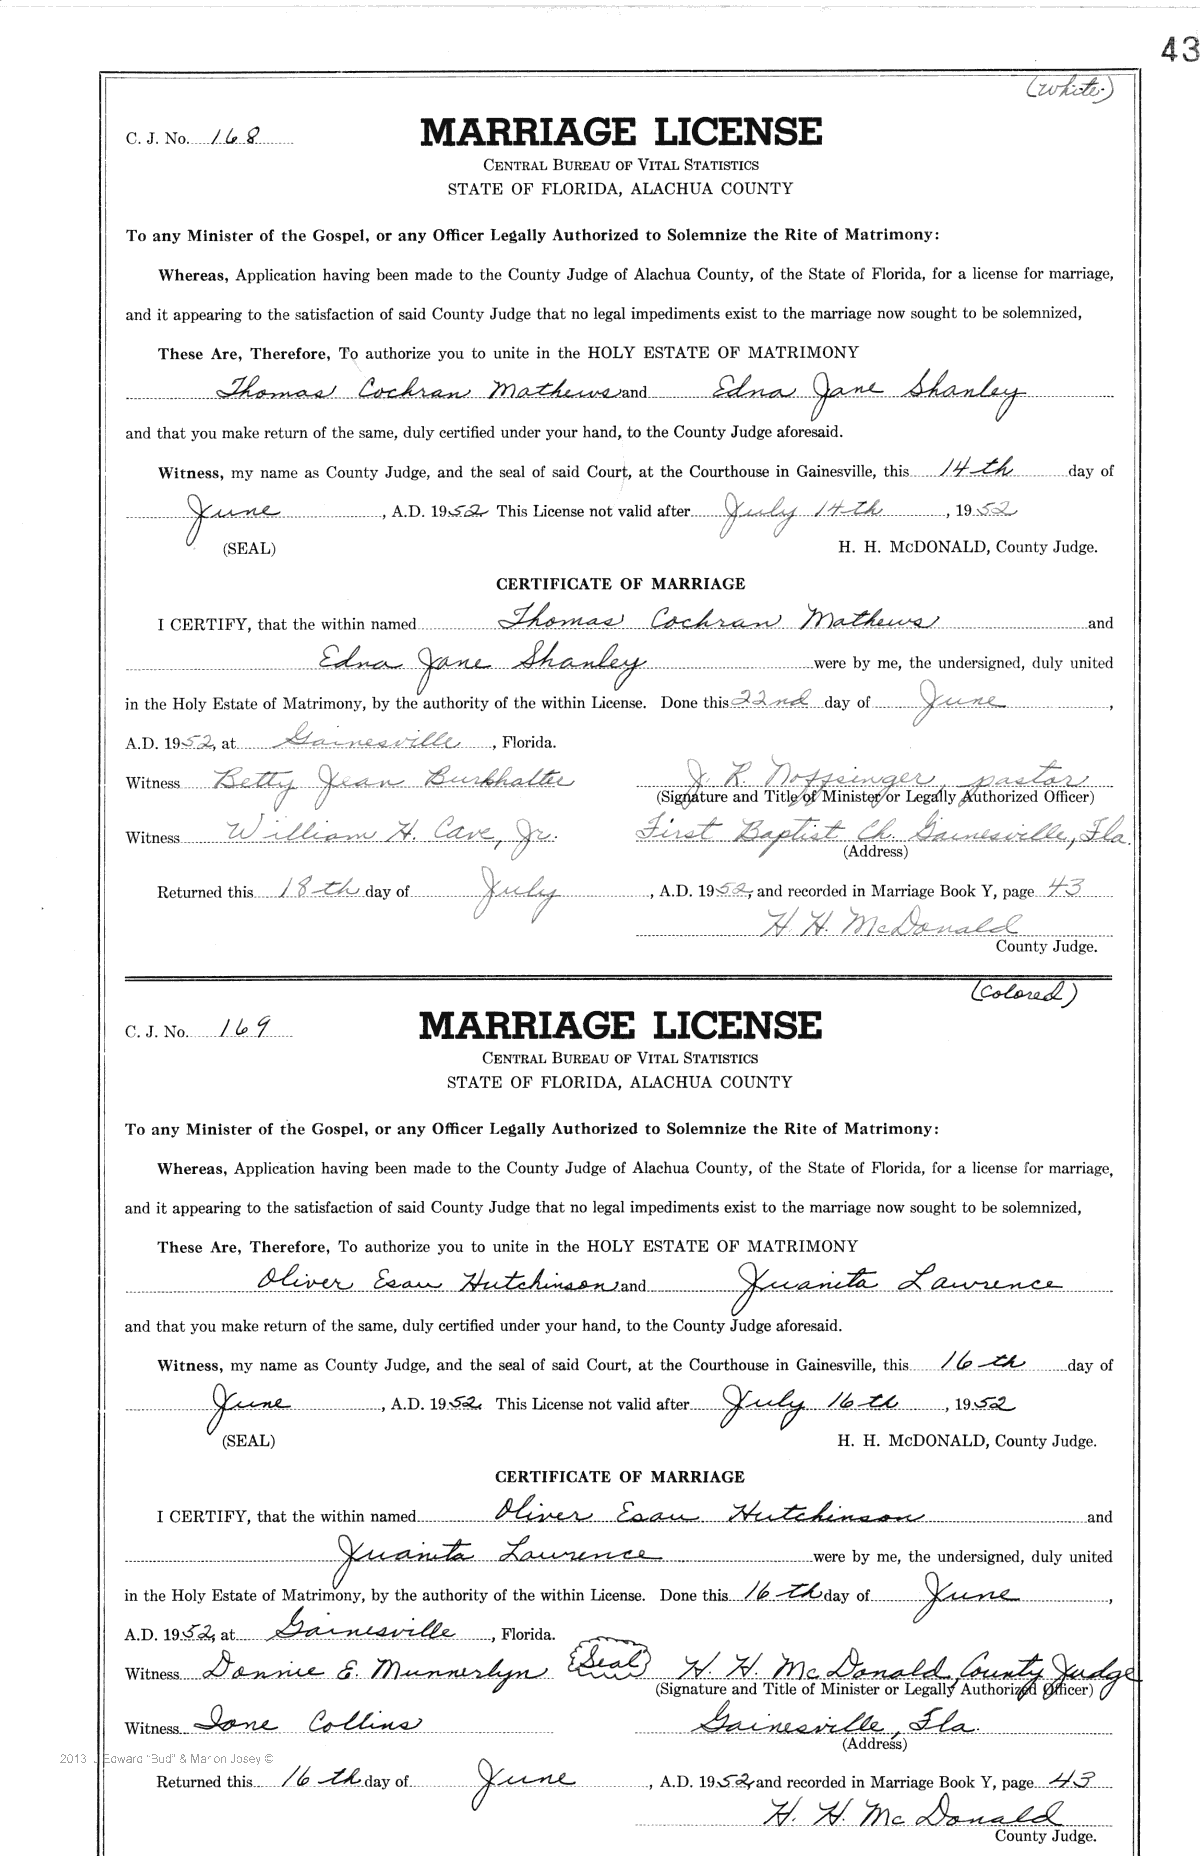 43
(white)
C. J. No. 168
MARRIAGE LICENSE
CENTRAL BUREAU OF VITAL STATISTICS
STATE OF FLORIDA, ALACHUA COUNTY
To any Minister of the Gospel, or any Officer Legally Authorized to Solemnize the Rite of Matrimony:
Whereas, Application having been made to the County Judge of Alachua County, of the State of Florida, for a license for marriage,
and it appearing to the satisfaction of said County Judge that no legal impediments exist to the marriage now sought to be solemnized,
These Are, Therefore, To authorize you to unite in the HOLY ESTATE OF MATRIMONY
Thomas Cochran Mathews and Edna Jane Shanley
and that you make return of the same, duly certified under your hand, to the County Judge aforesaid.
Witness, my name as County Judge, and the seal of said Court, at the Courthouse in Gainesville, this 14th day of
June, A.D. 1952 This License not valid after July 14th, 1952
(SEAL) H. H. McDONALD, County Judge.
CERTIFICATE OF MARRIAGE
I CERTIFY, that the within named Thomas Cochran Mathews and
Edna Jane Shanley were by me, the undersigned, duly united
in the Holy Estate of Matrimony, by the authority of the within License. Done this 22nd day of June,
A.D. 1952, at Gainesville, Florida.
Witness Betty Jean Burkhalter J. R. Noffsinger, pastor
(Signature and Title of Minister or Legally Authorized Officer)
Witness William H. Cave, Jr. First Baptist Ch. Gainesville, Fla.
(Address)
Returned this 18th day of July, A.D. 1952, and recorded in Marriage Book Y, page 43
H. H. McDonald
County Judge.
(colored)
C. J. No. 169
MARRIAGE LICENSE
CENTRAL BUREAU OF VITAL STATISTICS
STATE OF FLORIDA, ALACHUA COUNTY
To any Minister of the Gospel, or any Officer Legally Authorized to Solemnize the Rite of Matrimony:
Whereas, Application having been made to the County Judge of Alachua County, of the State of Florida, for a license for marriage,
and it appearing to the satisfaction of said County Judge that no legal impediments exist to the marriage now sought to be solemnized,
These Are, Therefore, To authorize you to unite in the HOLY ESTATE OF MATRIMONY
Oliver Esau Hutchinson and Juanita Lawrence
and that you make return of the same, duly certified under your hand, to the County Judge aforesaid.
Witness, my name as County Judge, and the seal of said Court, at the Courthouse in Gainesville, this 16th day of
June, A.D. 1952. This License not valid after July 16th, 1952
(SEAL) H. H. McDONALD, County Judge.
CERTIFICATE OF MARRIAGE
I CERTIFY, that the within named Oliver Esau Hutchinson and
Juanita Lawrence were by me, the undersigned, duly united
in the Holy Estate of Matrimony, by the authority of the within License. Done this 16th day of June,
A.D. 1952, at Gainesville, Florida.
Witness Donnie E. Munnerlyn (Seal) H. H. McDonald, County Judge
(Signature and Title of Minister or Legally Authorized Officer)
Witness Ione Collins Gainesville, Fla.
(Address)
2013 J Edward "Bud" & Marion Josey ©
Returned this 16th day of June, A.D. 1952, and recorded in Marriage Book Y, page 43
H. H. McDonald
County Judge.